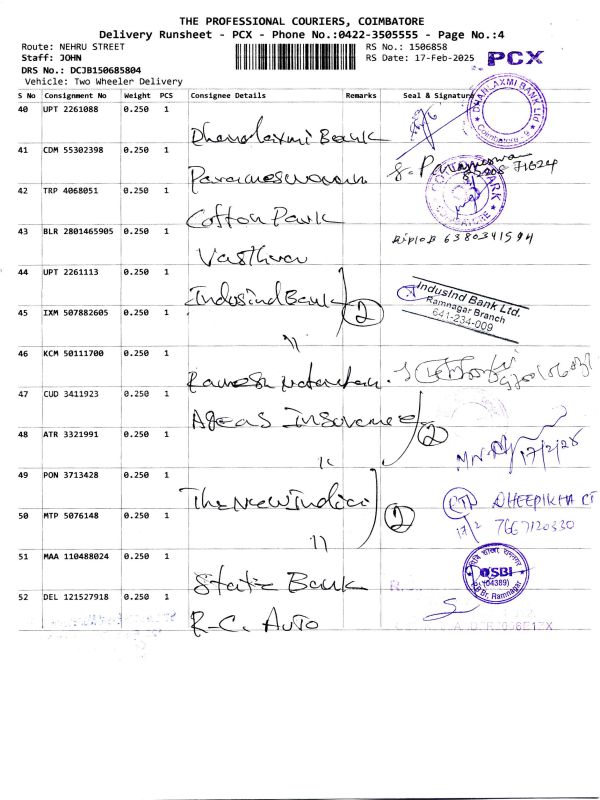 THE PROFESSIONAL COURIERS, COIMBATORE
Delivery Runsheet - PCX - Phone No.:0422-3505555 - Page No.:4
Route: NEHRU STREET
RS No.: 1506858
PCX
Staff: JOHN
RS Date: 17-Feb-2025
DRS No.: DCJB150685804
Vehicle: Two Wheeler Delivery
S No Consignment No Weight PCS Consignee Details Remarks Seal & Signature
40 UPT 2261088 0.250 1
Dhanalaxmi Bank
DHANLAXMI BANK Ltd
Coimbatore - 9
41 CDM 55302398 0.250 1
Parameswaran
S. Parameswaran
42 TRP 4068051 0.250 1
Cotton Park
43 BLR 2801465905 0.250 1
Vasthra
6380341594
44 UPT 2261113 0.250 1
IndusInd Bank
2
IndusInd Bank Ltd.
Ramnagar Branch
641-234-009
45 IXM 507882605 0.250 1
"
46 KCM 50111700 0.250 1
Ramesh Natarajan.
47 CUD 3411923 0.250 1
Ageas Insurance
2
48 ATR 3321991 0.250 1
"
17/2/25
49 PON 3713428 0.250 1
The New India
2
DHEEPIKHA CT
17/2 7667120330
50 MTP 5076148 0.250 1
"
51 MAA 110488024 0.250 1
State Bank
SBI
(04389)
Br. Ramnagar
52 DEL 121527918 0.250 1
R-C. Auto